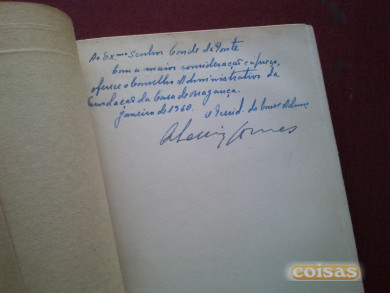 Ao Exmo Senhor Conde da Ponte
Com a maior consideração e apreço,
oferece o Conselho Administrativo da
Fundação da Casa de Bragança.
Janeiro de 1960. O Presid. do
coisas